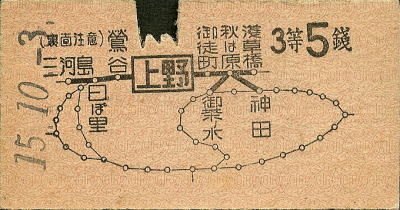 15.10.-3
(裏面注意)
三河島
鶯谷
日ぽ里
上野
御徒町
秋は原
浅草橋
御茶水
神田
3等5錢